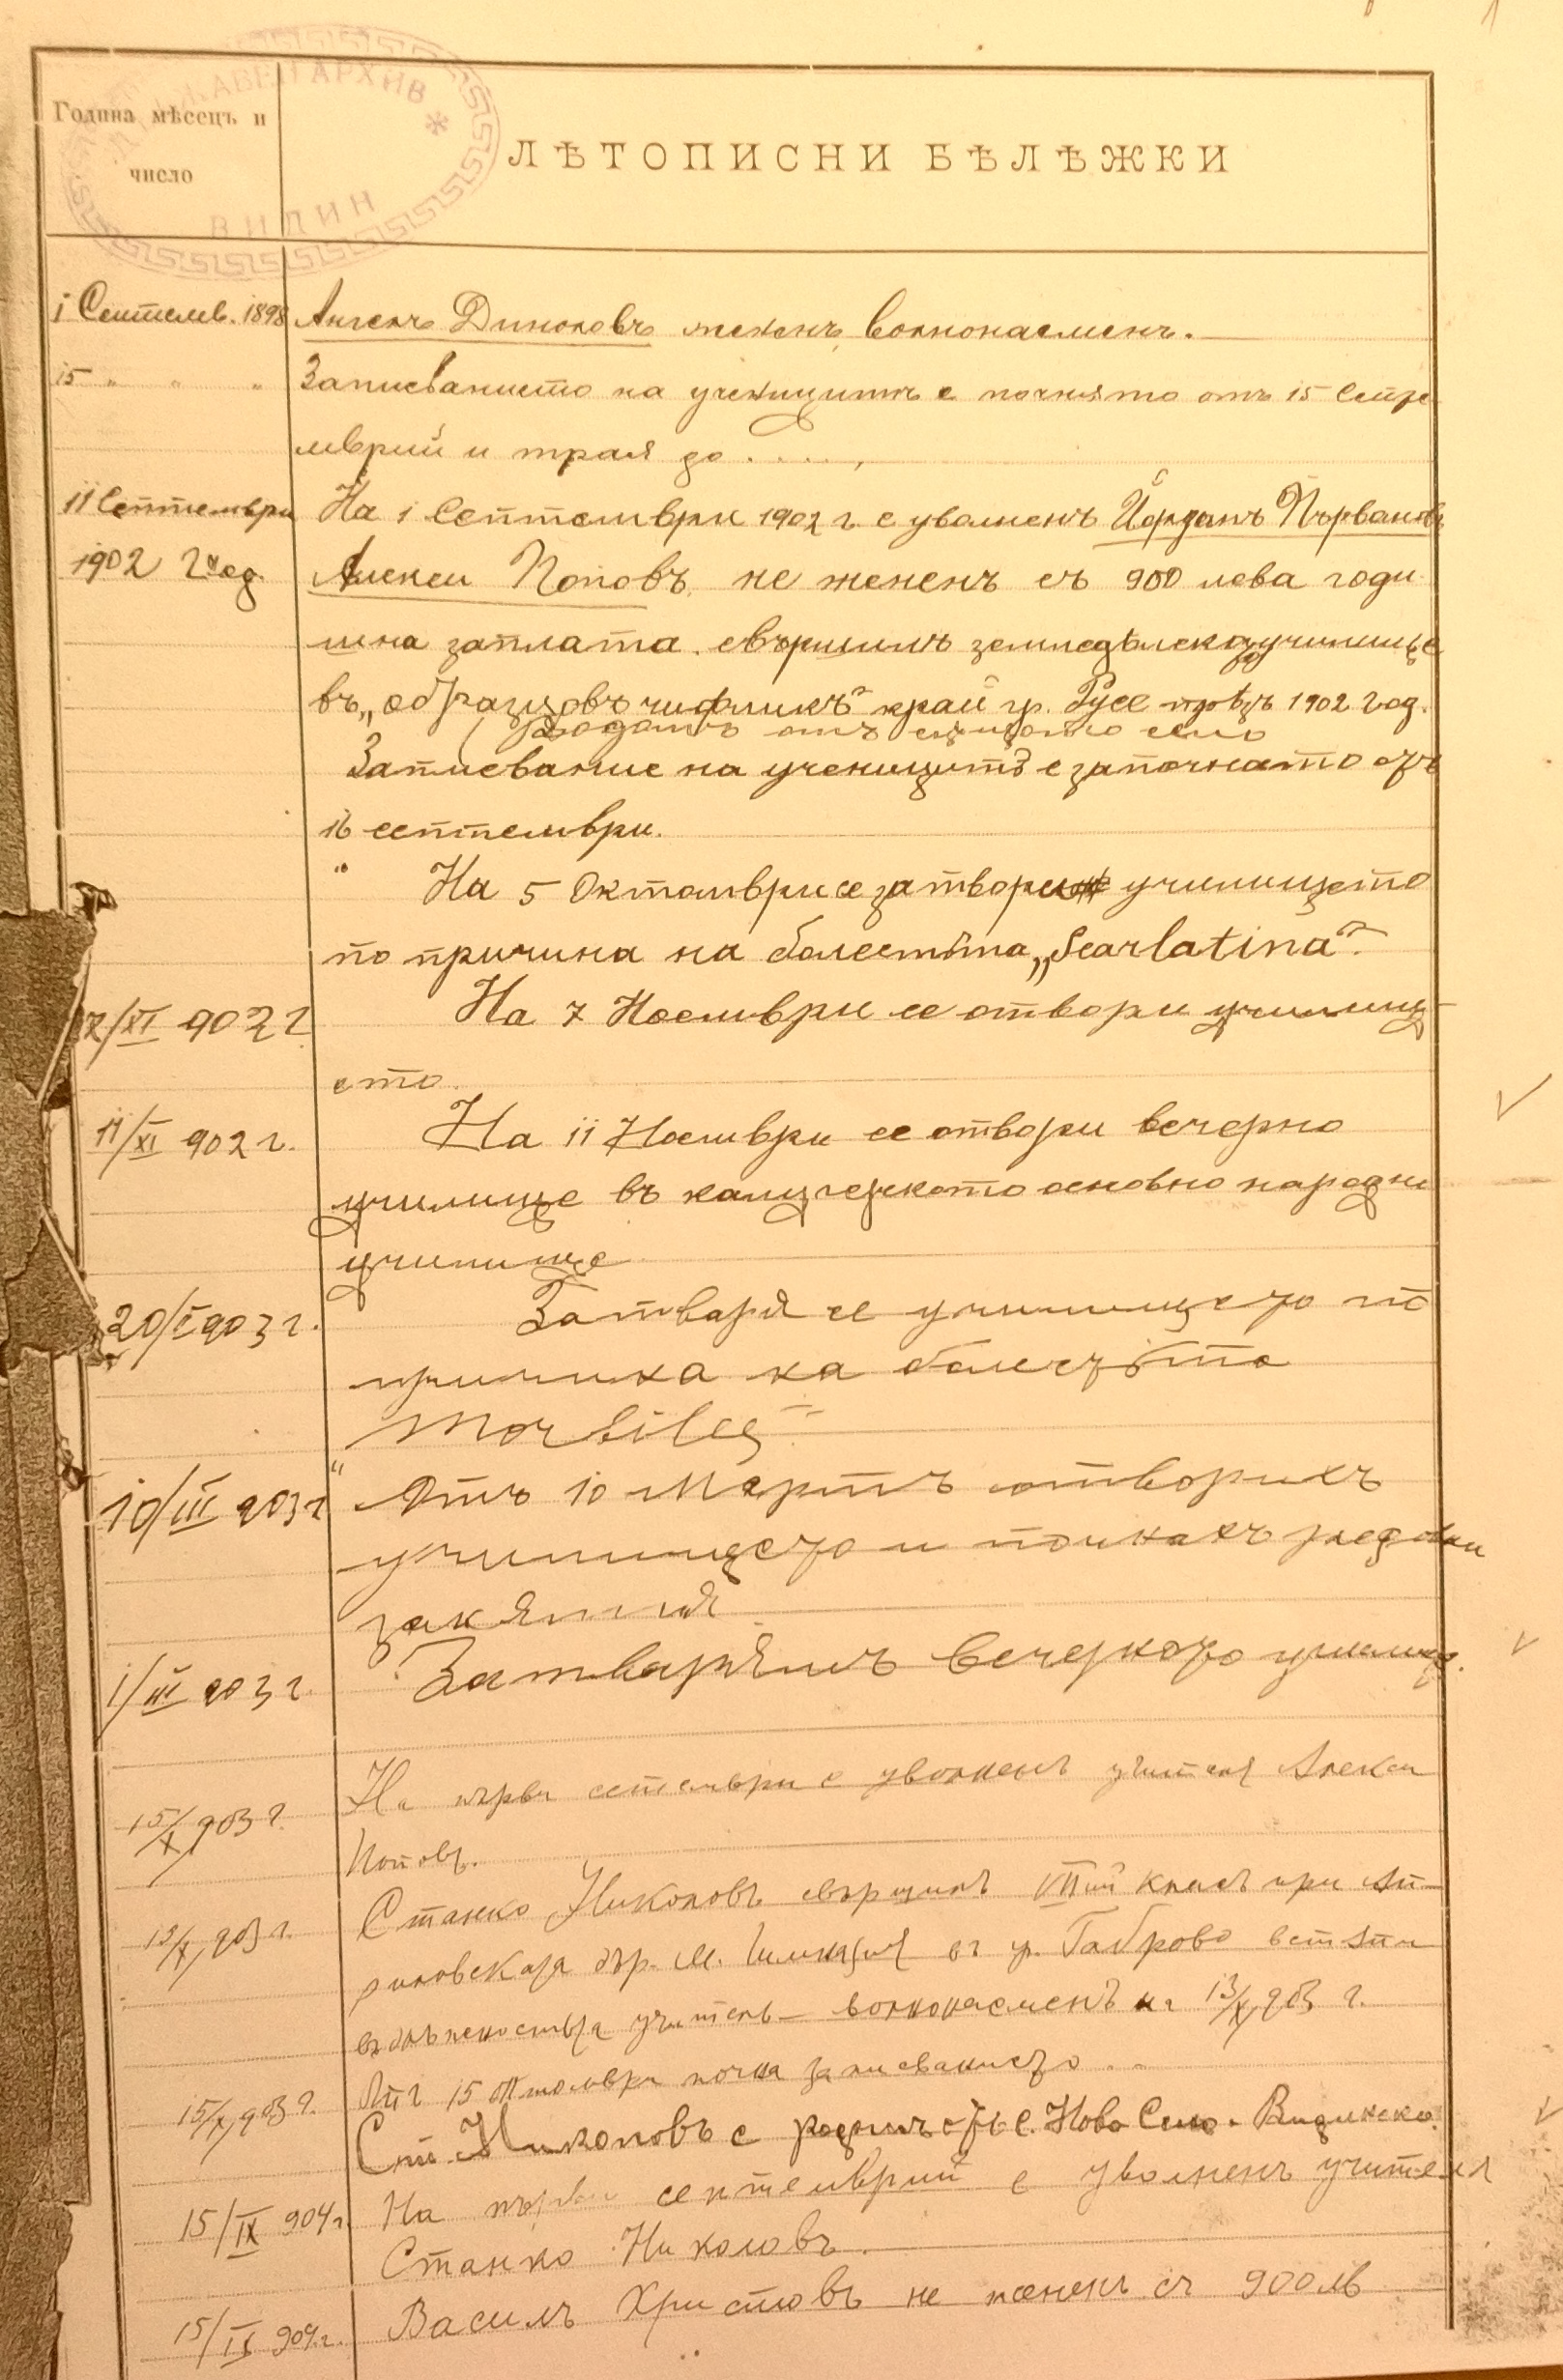 ДЪРЖАВЕН АРХИВ * ВИДИН
Година мѣсецъ и
число
ЛѢТОПИСНИ БѢЛѢЖКИ
1 Септемв. 1898 Ангелъ Диноловъ жененъ, волнонаеменъ.
15 " " " Записванието на ученицитѣ е почнято отъ 15 Септе
мврий и трая до . . . . ,
11 Септември На 1 Септември 1902 г. е уволненъ Йорданъ Първановъ
1902 год. Алекси Поповъ, не жененъ съ 900 лева годи
шна заплата. свършилъ земледѣлско училище
въ „образцовъ чифликъ" край гр. Русе прѣзъ 1902 год.
(Родомъ отъ сѫщото село
Записвание на ученицитѣ е започнато отъ
16 септември.
" На 5 Октомври се затвори училището
по причина на болестьта „Scarlatina".
7/XI 902 г. На 7 Ноември се отвори училищ-
ето.
11/XI 902 г. На 11 Ноември се отвори вечерно
училище въ калугерското основно народно
училище
20/I 903 г. Затваря се училището по
причина на болестьта
"Morbiles"
10/III 903 г. Отъ 10 Мартъ отворихъ
училището и почнахъ редовни
занятия
1/III 903 г. Затварямъ вечерното училище.
15/X 903 г. На първи септември е уволненъ учителя Алекси
Поповъ.
13/X 903 г. Станко Николовъ свършилъ VIIий класъ при Ап-
риловската дър. м. гимназия въ гр. Габрово встѫпи
въ длъжностьта учитель – волнонаеменъ на 13/X 903 г.
15/X 903 г. Отъ 15 Октомври почна записванието . .
Ст. Николовъ е родомъ отъ с. Ново Село – Видинско.
15/IX 904 г. На първи септемврий е уволненъ учителя
Станко Николовъ.
15/IX 904 г. Василъ Христовъ не жененъ съ 900 лв